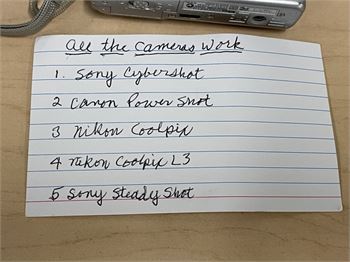 All the Cameras Work
1. Sony Cybershot
2 Canon Power Shot
3 Nikon Coolpix
4 Nikon Coolpix L3
5 Sony Steady Shot